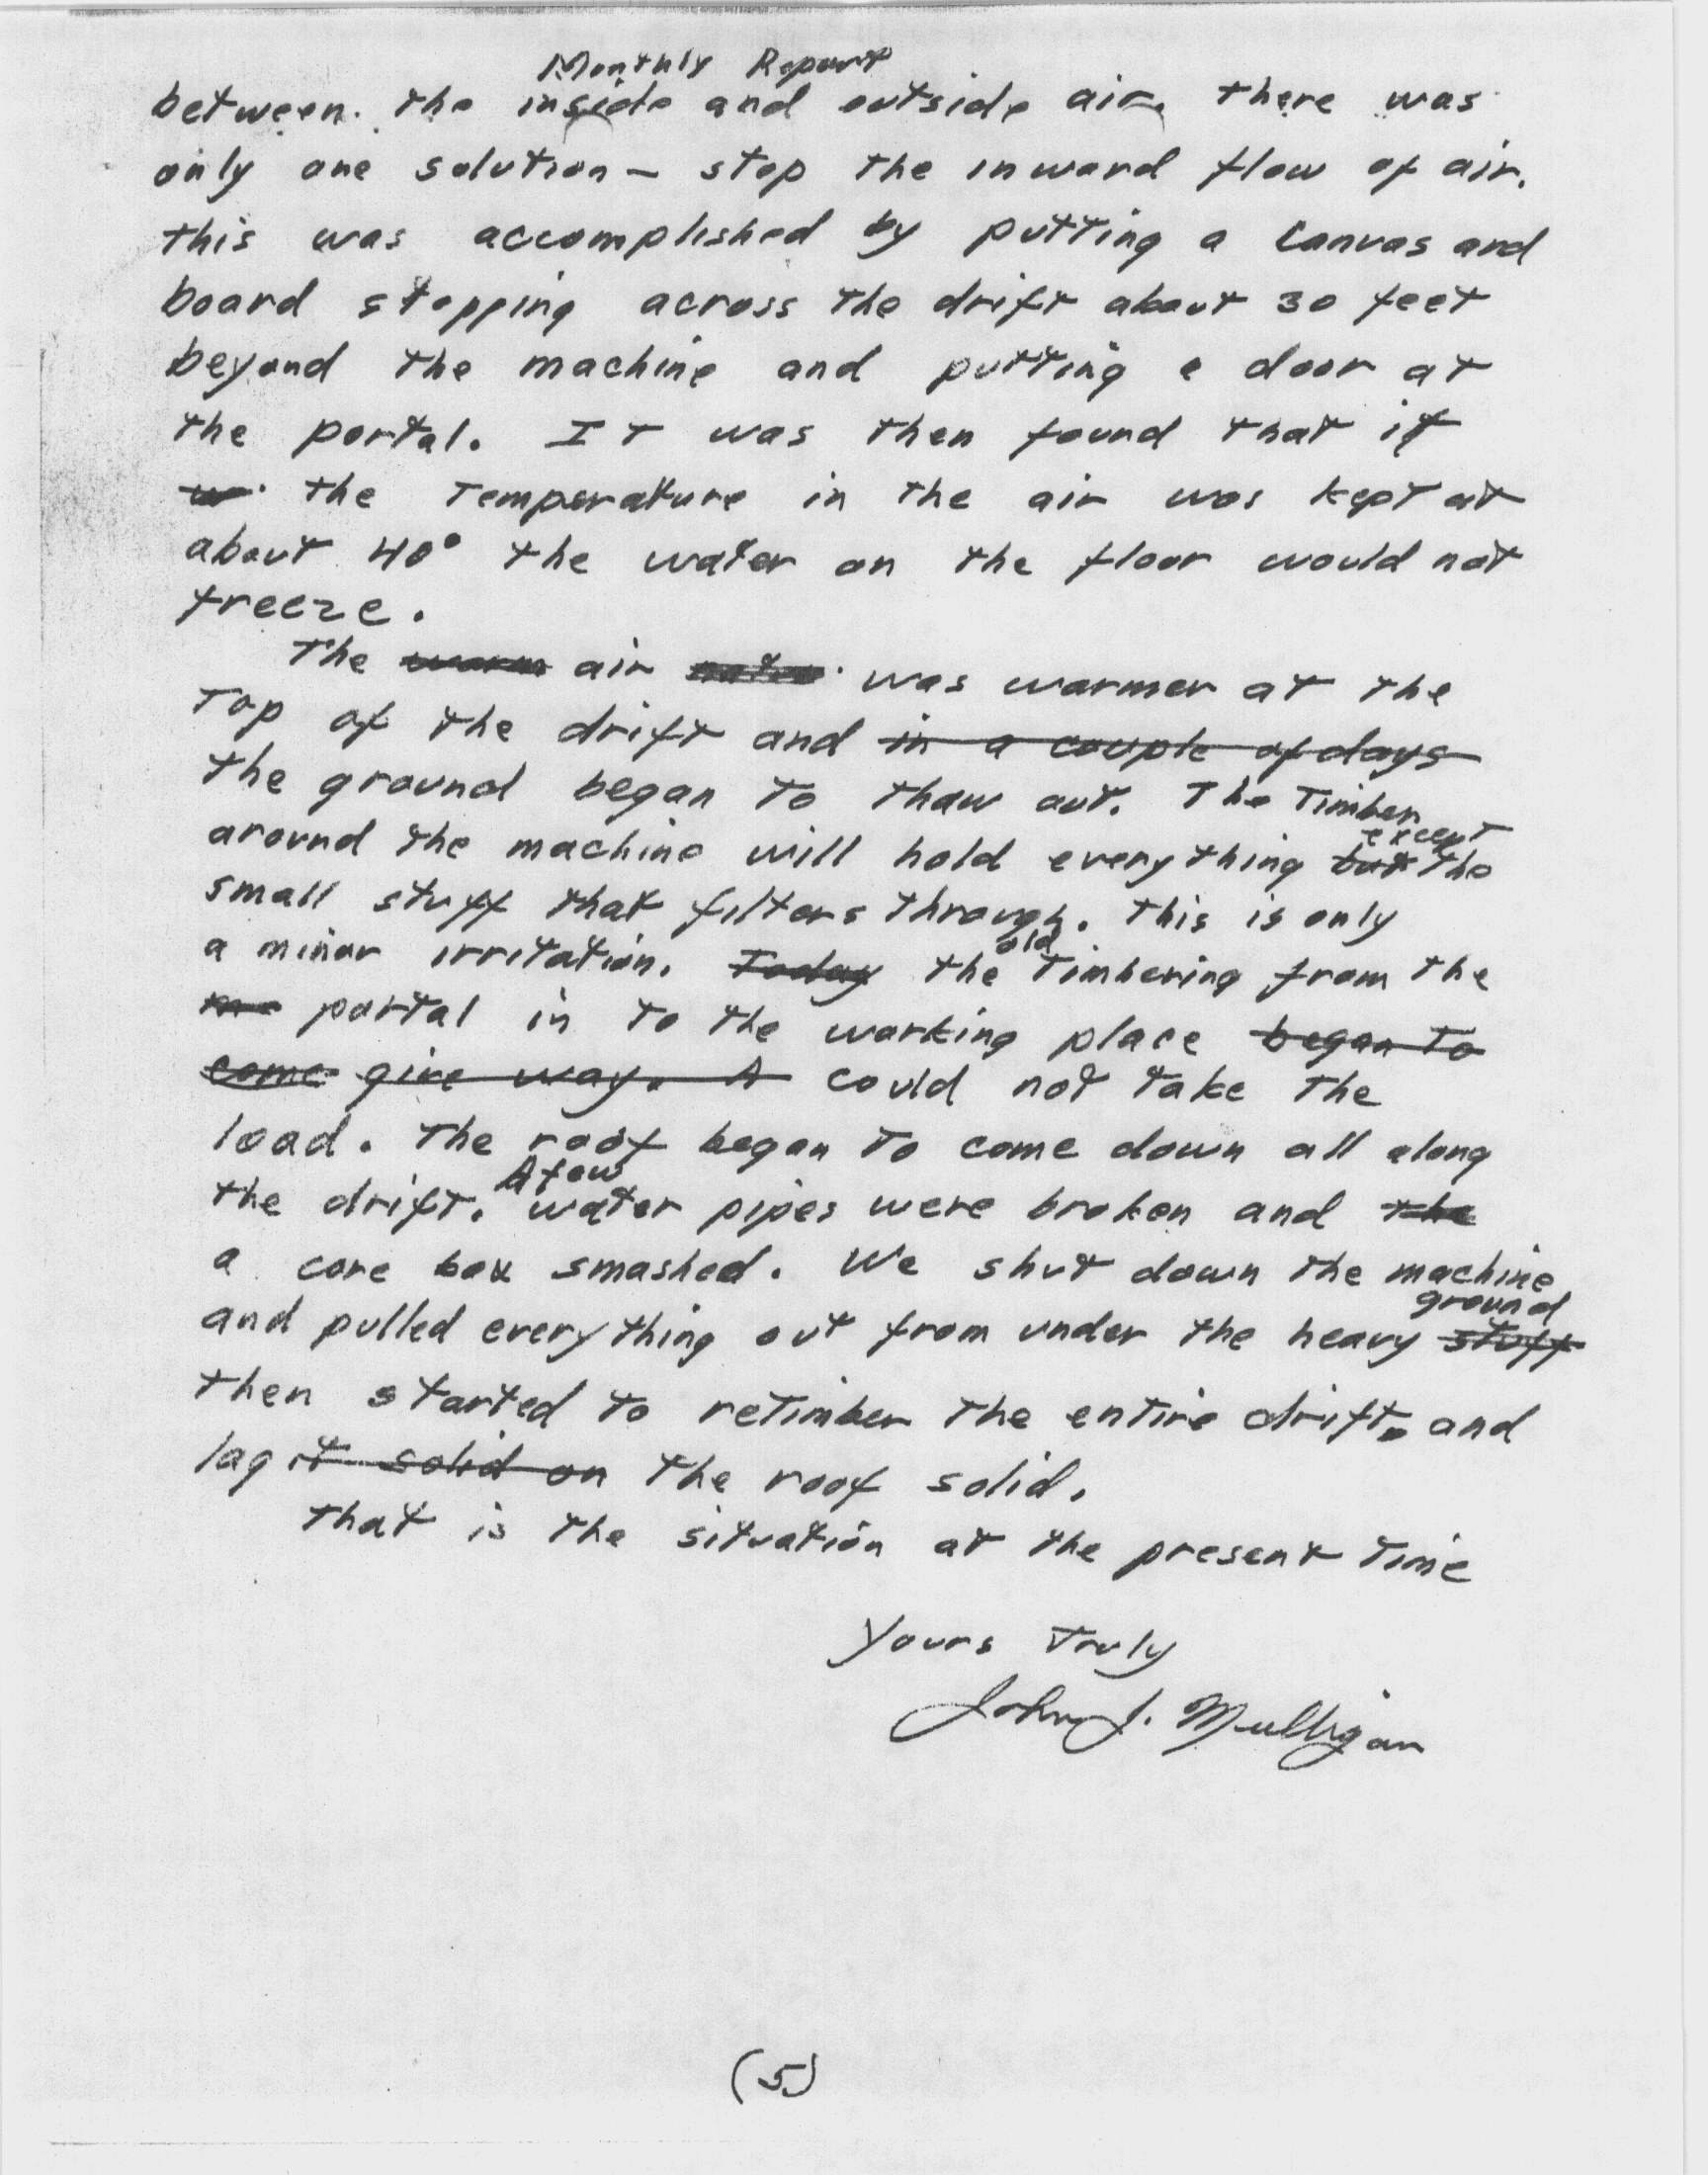 Monthly Report
between the inside and outside air. There was
only one solution - stop the inward flow of air.
This was accomplished by putting a canvas and
board stopping across the drift about 30 feet
beyond the machine and putting a door at
the portal. It was then found that if
the temperature in the air was kept at
about 40° the water on the floor would not
freeze.
The warm air was warmer at the
top of the drift and in a couple of days
the ground began to thaw out. The timber
except
around the machine will hold everything but the
small stuff that filters through. This is only
old
a minor irritation. Today the timbering from the
portal in to the working place began to
come give way. A could not take the
load. The roof began to come down all along
A few
the drift. water pipes were broken and the
a core box smashed. We shut down the machine
ground
and pulled everything out from under the heavy stuff
then started to retimber the entire drift, and
lag it solid on the roof solid.
That is the situation at the present time
Yours Truly
John J. Mulligan
(5)